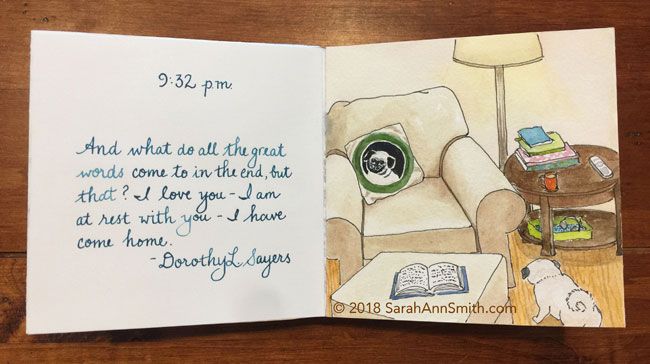 9:32 p.m.
And what do all the great
words come to in the end, but
that? I love you - I am
at rest with you - I have
come home.
- Dorothy L. Sayers
© 2018 SarahAnnSmith.com